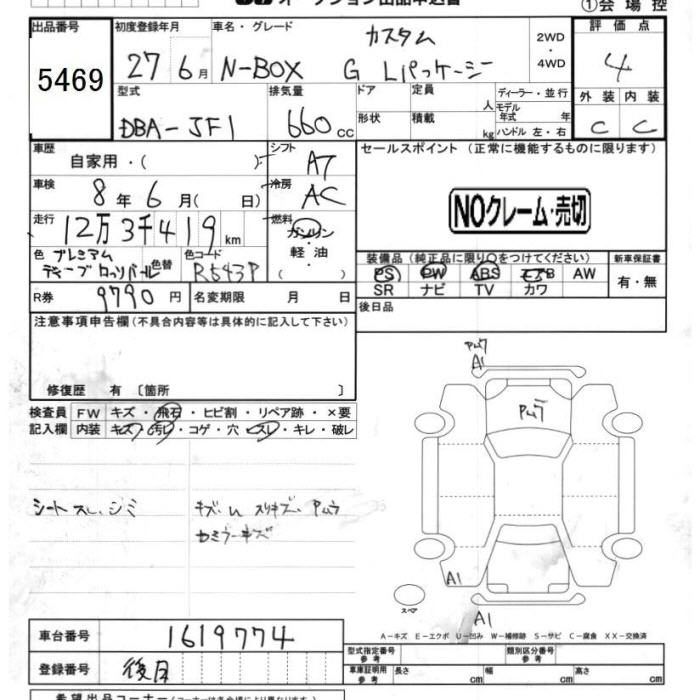 オークション出品申込書
①会場控
出品番号 初度登録年月 車名・グレード カスタム 2WD・4WD 評価点
5469 27年 6月 N-BOX G Lパッケージ 4
型式 排気量 ドア 定員 人 ディーラー・並行 外装 内装
DBA-JF1 660cc 形状 積載 kg モデル年式 年 ハンドル 左・右 C C
車歴 自家用・( ) シフト AT セールスポイント (正常に機能するものに限ります)
車検 8年 6月( 日) 冷房 AC
NOクレーム・売切
走行 12万3千419km 燃料 ガソリン・軽油
色 プレミアム 色替 色コード R543P 装備品 (純正品に限り○をつけてください) 新車保証書
PS PW ABS エアB AW 有・無
SR ナビ TV カワ
R券 9790円 名変期限 月 日 後日品
注意事項申告欄(不具合内容等は具体的に記入して下さい)
修復歴 有 〔箇所 〕
検査員記入欄 FW キズ・飛石・ヒビ割・リペア跡・×要
内装 キズ・汚レ・コゲ・穴・スレ・キレ・破レ
シートスレ、シミ キズ・U スリキズ、Pムラ
カミラーキズ
Pムラ
A1
Pムラ
A1
A1
スペア
A-キズ E-エクボ U-凹み W-補修跡 S-サビ C-腐食 XX-交換済
車台番号 1619774 型式指定番号 参考 類別区分番号 参考
登録番号 後日 車庫証明用 参考 長さ cm 幅 cm 高さ cm
希望出品コーナー